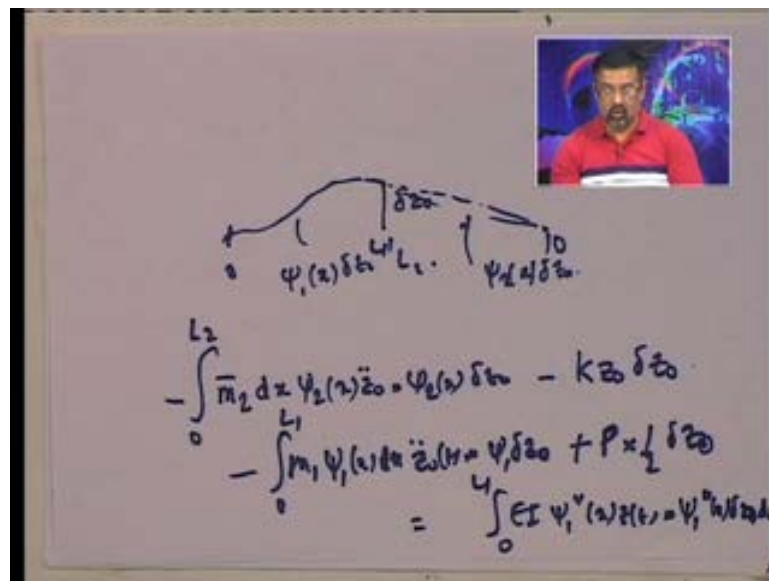 δz₀
0
ψ₁(x) δz₀ L₁ L₂
ψ₂(x) δz₀
0
- ∫₀^{L₂} m̄₂ dx ψ₂(x) z̈₀ × ψ₂(x) δz₀ - K z₀ δz₀
- ∫₀^{L₁} m₁ ψ₁(x) dx z̈₀(t) × ψ₁ δz₀ + P × ½ δz₀
= ∫₀^{L₁} EI ψ₁''(x) z(t) × ψ₁''(x) δz₀ dx